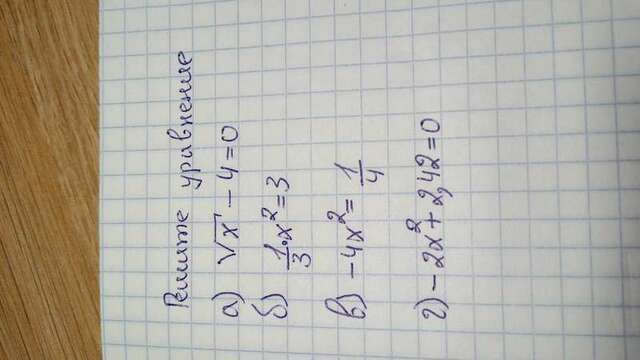 Решите уравнение
а) √x - 4 = 0
б) 1/3 · x² = 3
в) -4x² = 1/4
г) -2x² + 2,42 = 0